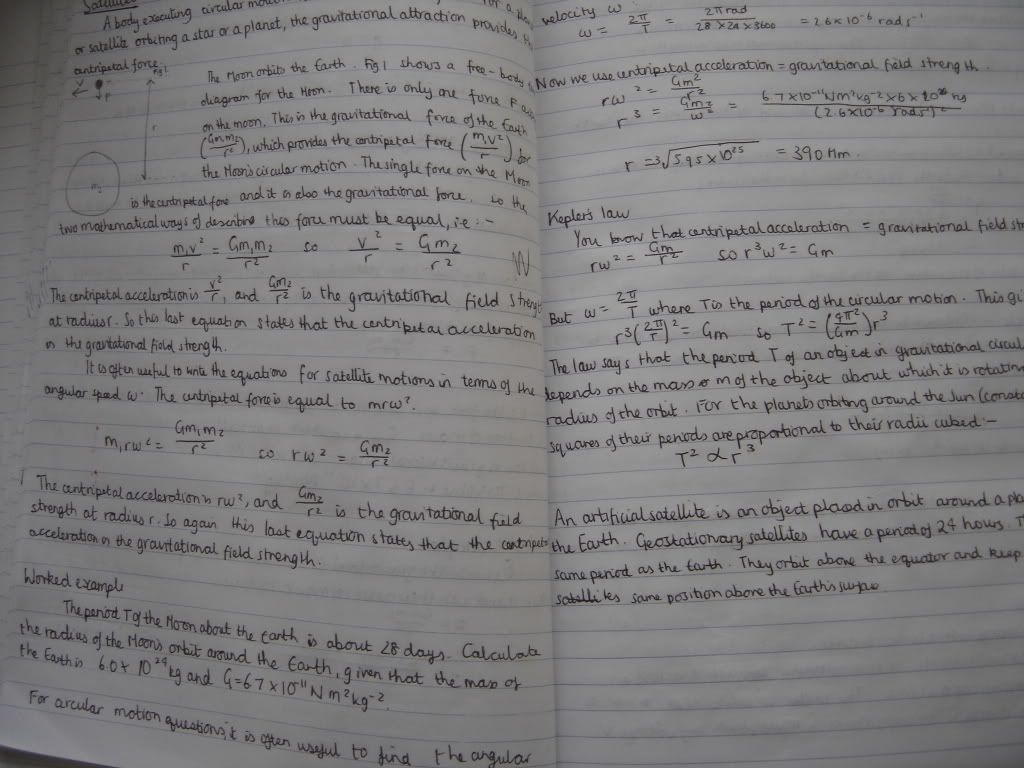 Satellites
A body executing circular
or satellite orbiting a star or a planet, the gravitational attraction provides the
centripetal force
Fig 1
F
r
m₂
The Moon orbits the Earth. Fig 1 shows a free-body
diagram for the Moon. There is only one force F
on the moon. This is the gravitational force of the Earth
(Gm₁m₂/r²), which provides the centripetal force (m₁v²/r) for
the Moon's circular motion. The single force on the Moon
is the centripetal force and it is also the gravitational force. So the
two mathematical ways of describing this force must be equal, i.e :-
m₁v²/r = Gm₁m₂/r² so v²/r = Gm₂/r²
The centripetal acceleration is v²/r, and Gm₂/r² is the gravitational field strength
at radius r. So this last equation states that the centripetal acceleration
is the gravitational field strength.
It is often useful to write the equations for satellite motions in terms of the
angular speed ω. The centripetal force is equal to mrω².
m₁rω² = Gm₁m₂/r² so rω² = Gm₂/r²
The centripetal acceleration is rω², and Gm₂/r² is the gravitational field
strength at radius r. So again this last equation states that the centripetal
acceleration is the gravitational field strength.
Worked example
The period T of the Moon about the Earth is about 28 days. Calculate
the radius of the Moon's orbit around the Earth, given that the mass of
the Earth is 6.0 x 10²⁴ kg and G = 6.7 x 10⁻¹¹ N m² kg⁻².
For circular motion questions, it is often useful to find the angular
velocity ω.
ω = 2π/T = 2π rad/28 x 24 x 3600 = 2.6 x 10⁻⁶ rad s⁻¹
Now we use centripetal acceleration = gravitational field strength.
rω² = Gm₂/r²
r³ = Gm₂/ω² = 6.7 x 10⁻¹¹ Nm² kg⁻² x 6 x kg/(2.6 x 10⁻⁶ rad s⁻¹)²
r = ³√5.95 x 10²⁵ = 390 Mm.
Kepler's law
You know that centripetal acceleration = gravitational field
rω² = Gm/r² so r³ω² = Gm
But ω = 2π/T where T is the period of the circular motion. This
r³(2π/T)² = Gm so T² = (4π²/Gm)r³
The law says that the period T of an object in gravitational
depends on the mass m of the object about which it is
radius of the orbit. For the planets orbiting around the Sun
squares of their periods are proportional to their radii cubed :-
T² ∝ r³
An artificial satellite is an object placed in orbit around a
the Earth. Geostationary satellites have a period of 24 hours.
same period as the Earth. They orbit above the equator and keep
satellites same position above the Earth's surface